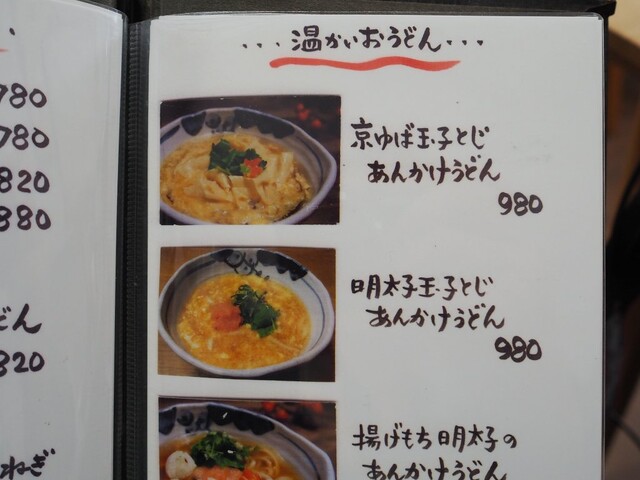 780
780
820
880
どん
820
ねぎ
・・・温かいおうどん・・・
京ゆば玉子とじ
あんかけうどん
980
明太子玉子とじ
あんかけうどん
980
揚げもち明太子の
あんかけうどん